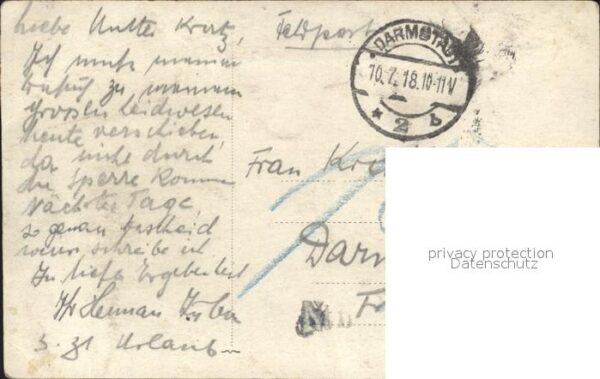 Liebe Mutter Kratz,
Ich muß meinen
Besuch zu meinem
grossen Leidwesen
heute verschieben
da nicht durch
die Sperre komme
Nächster Tage
so genau Bescheid
schreibe ich
In tiefer Ergebenheit
Ihr Herman
z. Zt Urlaub
Feldpost
DARMSTADT
10.7.18.10-11V
* 2 b
Frau Kr
Darm
privacy protection
Datenschutz